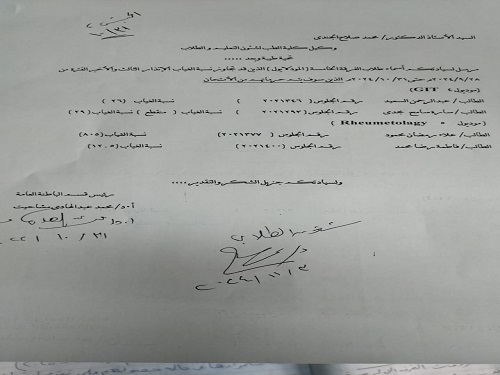 السيد الأستاذ الدكتور / محمد صلاح المجدى
وكيل كلية الطب لشئون التعليم و الطلاب
تحية طيبة وبعد .....
نرسل لسيادتكم أسماء طلاب الفرقة الخامسة ( المؤد لايبول ) الذين قد تجاوزو نسبة الغياب الإنذار الثالث والأخير الفترة من
٢٠٢٤/٩/٢٨م وحتى ٢٠٢٤/١٠/٣١م الذين سوف يتم حرمانهم من الأمتحان
(موديول GIT)
الطالب / عبدالرحمن السعيد رقم الجلوس ( ٢٠٢١٣٤٦ ) نسبة الغياب (٢٦)
الطالب / سارية سامح مجدى رقم الجلوس ( ٢٠٢١٢٩٢) نسبة الغياب ( منقطع ) نسبة الغياب (٢٩)
(موديول Rheumetology)
الطالب / علاء رمضان محمود رقم الجلوس (٢٠٢١٣٧٧) نسبة الغياب (٨.٥)
الطالب / فاطمة رضا محمد رقم الجلوس (٢٠٢١٤٠٠) نسبة الغياب (١٢.٥)
ولسيادتكم جزيل الشكر والتقدير ....
رئيس قسم الباطنة العامة
أ.د/ محمد عبدالهادى مشاحيت
٣١ / ١٠ /
شئون الطلاب
٢٠٢٤/١١/٣